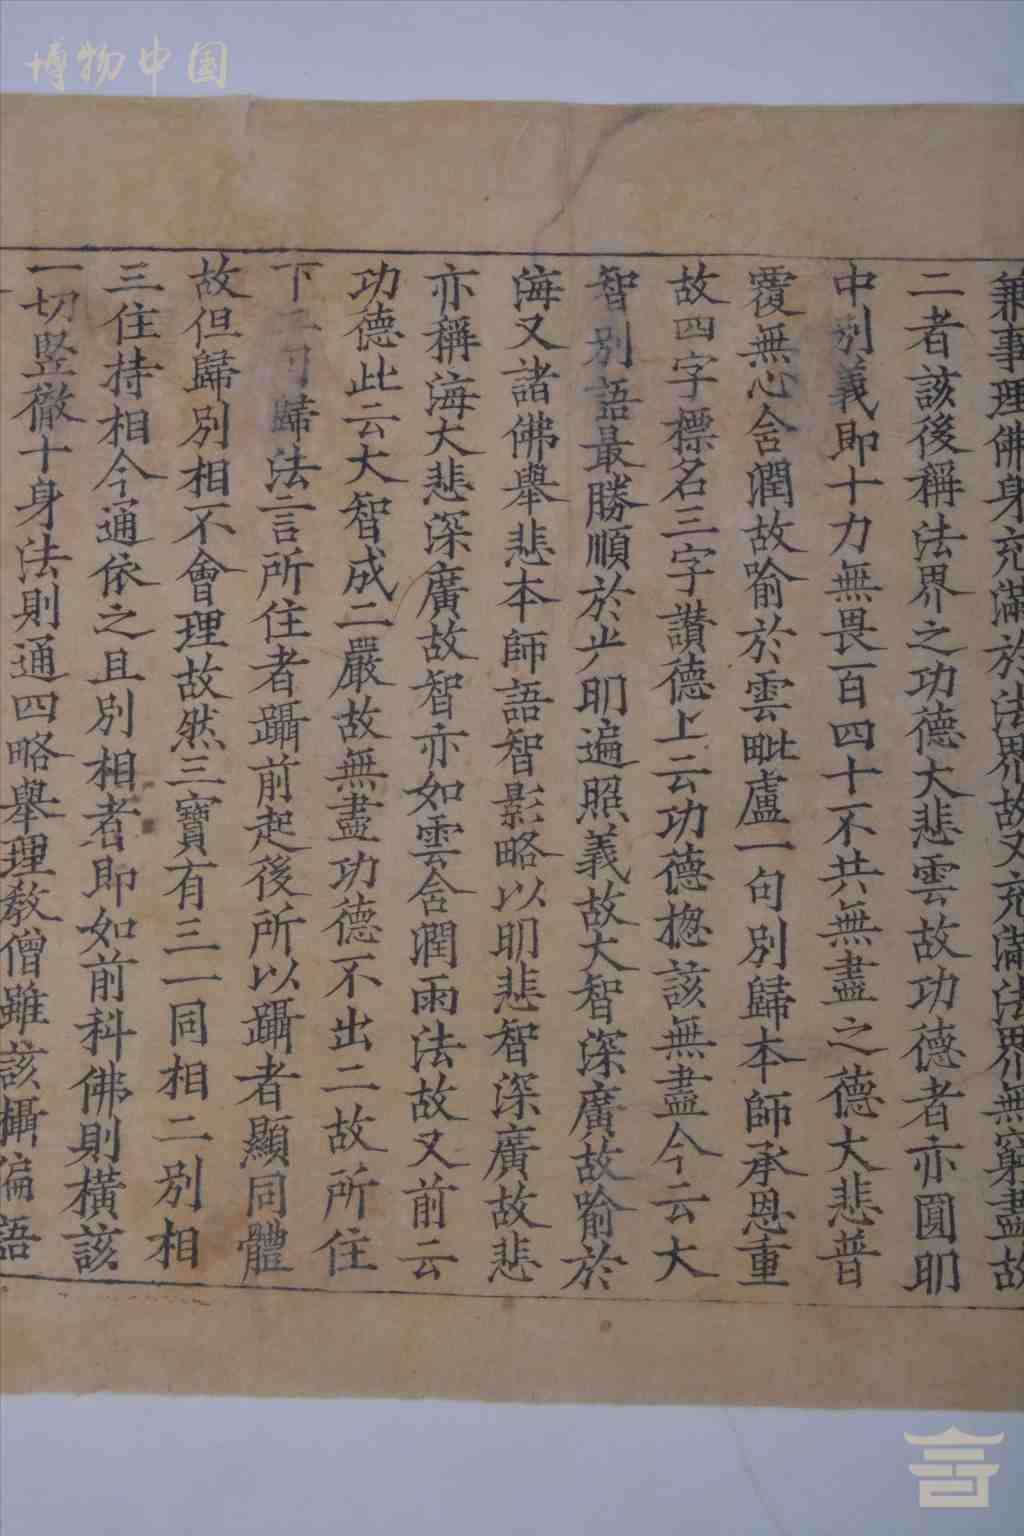 博物中国
兼事理佛身充滿於法界故又充滿法界無窮盡故
二者該後稱法界之功德大悲雲故功德者亦圓明
中別義即十力無畏百四十不共無盡之德大悲普
覆無心含潤故喻於雲毗盧一句別歸本師承恩重
故四字標名三字讚德上云功德揔該無盡今云大
智別語最勝順於光明遍照義故大智深廣故喻於
海又諸佛舉悲本師語智影略以明悲智深廣故悲
亦稱海大悲深廣故智亦如雲含潤雨法故又前云
功德此云大智成二嚴故無盡功德不出二故所住
下二句歸法言所住者躡前起後所以躡者顯同體
故但歸別相不會理故然三寶有三一同相二別相
三住持相今通依之且別相者即如前科佛則橫該
一切竪徹十身法則通四略舉理教僧雖該攝偏語